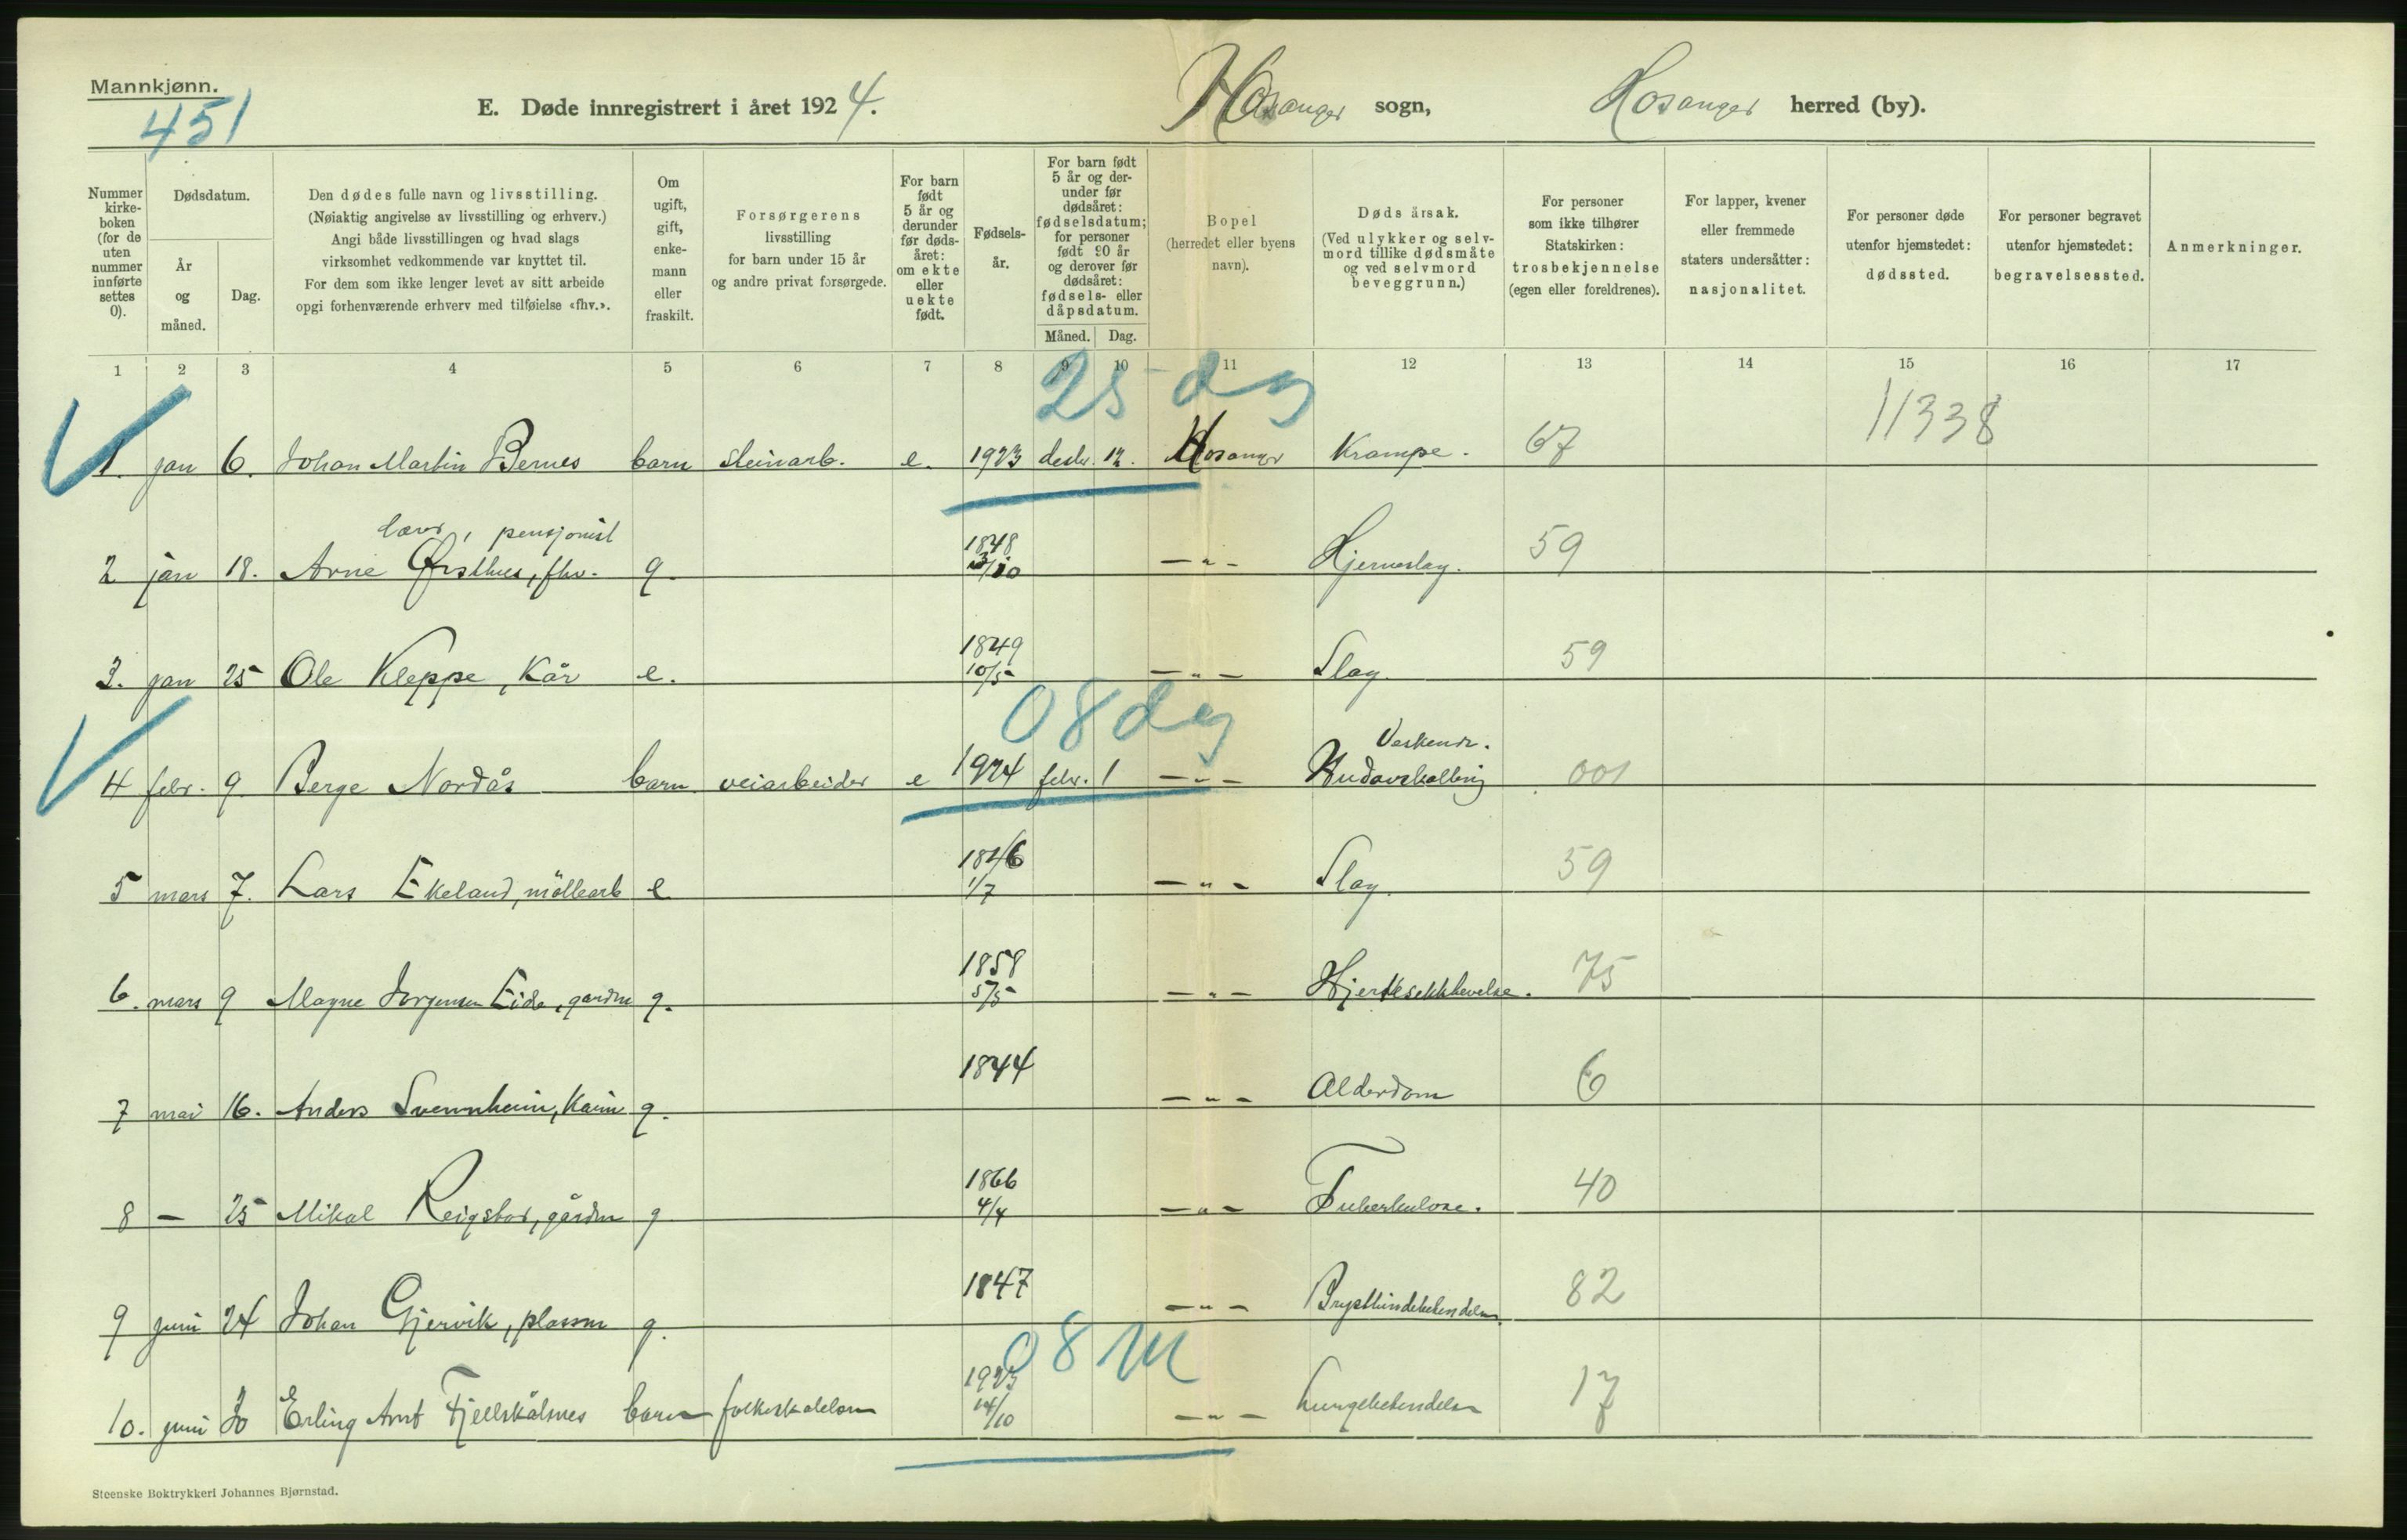 Mannkjønn.
451
E. Døde innregistrert i året 1924.
Hosanger sogn,
Hosanger herred (by).
Nummer kirke-boken (for de uten nummer innførte settes 0).
Dødsdatum.
År og måned.
Dag.
Den dødes fulle navn og livsstilling.
(Nøiaktig angivelse av livsstilling og erhverv.)
Angi både livsstillingen og hvad slags
virksomhet vedkommende var knyttet til.
For dem som ikke lenger levet av sitt arbeide
opgi forhenværende erhverv med tilføielse «fhv.».
Om ugift, gift, enke-mann eller fraskilt.
Forsørgerens
livsstilling
for barn under 15 år
og andre privat forsørgede.
For barn født 5 år og derunder før døds-året: om ekte eller uekte født.
Fødsels-år.
For barn født 5 år og der-under før dødsåret: fødselsdatum; for personer født 90 år og derover før dødsåret: fødsels- eller dåpsdatum.
Måned.
Dag.
Bopel
(herredet eller byens
navn).
Dødsårsak.
(Ved ulykker og selv-
mord tillike dødsmåte
og ved selvmord
beveggrunn.)
For personer
som ikke tilhører
Statskirken:
trosbekjennelse
(egen eller foreldrenes).
For lapper, kvener
eller fremmede
staters undersåtter:
nasjonalitet.
For personer døde
utenfor hjemstedet:
dødssted.
For personer begravet
utenfor hjemstedet:
begravelsessted.
Anmerkninger.
1 2 3 4 5 6 7 8 9 10 11 12 13 14 15 16 17
25 dg
11338
1. jan 6. Johan Martin Bernes barn steinarb. e. 1923 desbr. 12. Hosanger Krampe. 67
lærer, pensjonist
2 jan 18. Arne Øisthus, fhv. g. 1848 —„— Hjerneslag. 59
3. jan 25 Ole Kleppe, Kår e. 1849 10/5 —„— Slag. 59
08 dg
Veskener.
4 febr. 9. Berge Nordås barn veiarbeider e 1924 febr. 1 —„— 001
5 mars 7. Lars Ekeland, møllearb e 1846 1/7 —„— Slag. 59
6. mars 9 Magne Jørgensen Eide, gårdm g. 1858 5/5 —„— Hjertesekkhevelse. 75
7 mai 16. Anders Svennheim, Kårm g. 1844 —„— Alderdom 6
8 — 25 Mikal Reigstad, gårdm g 1866 4/4 —„— Tuberkulose. 40
9 juni 24 Johan Gjervik, plassm g. 1847 —„— Brysthindebetendelse. 82
08 m
10. juni 30 Erling Arnt Fjellskålnes barn folkeskolelærer 1923 14/10 —„— Lungebetendelse 17
Steenske Boktrykkeri Johannes Bjørnstad.